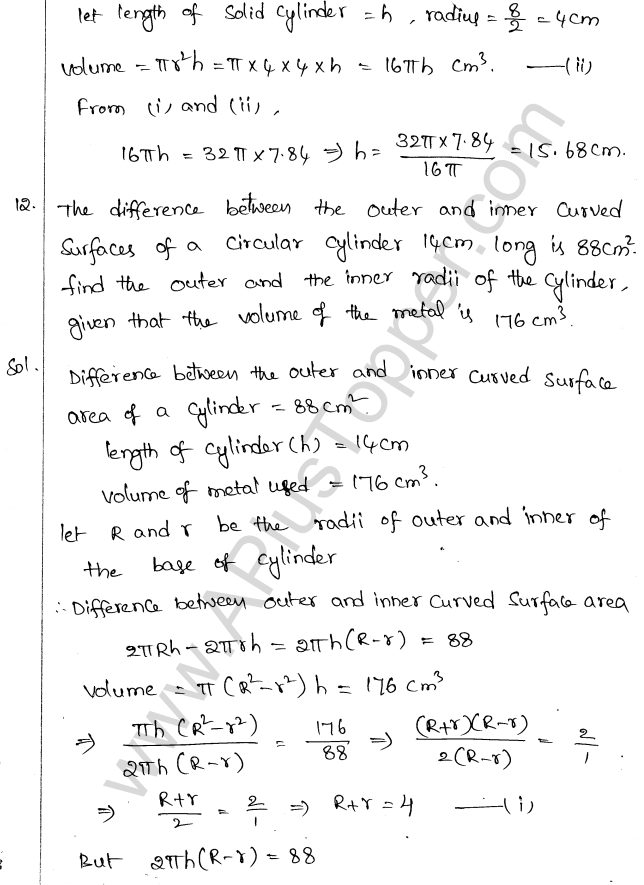 let length of solid cylinder = h , radius = 8/2 = 4cm
volume = πr²h = π × 4 × 4 × h = 16πh cm³. —(ii)
From (i) and (ii),
16πh = 32π × 7.84 ⇒ h = 32π × 7.84/16π = 15.68cm.
12. The difference between the outer and inner curved
surfaces of a circular cylinder 14cm long is 88cm².
find the outer and the inner radii of the cylinder,
given that the volume of the metal is 176 cm³.
Sol. Difference between the outer and inner curved surface
area of a cylinder = 88cm².
length of cylinder (h) = 14cm
volume of metal used = 176 cm³.
let R and r be the radii of outer and inner of
the base of cylinder
∴ Difference between outer and inner curved surface area
2πRh − 2πrh = 2πh(R−r) = 88
volume = π (R²−r²) h = 176 cm³
⇒ πh (R²−r²)/2πh (R−r) = 176/88 ⇒ (R+r)(R−r)/2(R−r) = 2/1
⇒ R+r/2 = 2/1 ⇒ R+r = 4 —(i)
But 2πh(R−r) = 88
www.APlusTopper.com